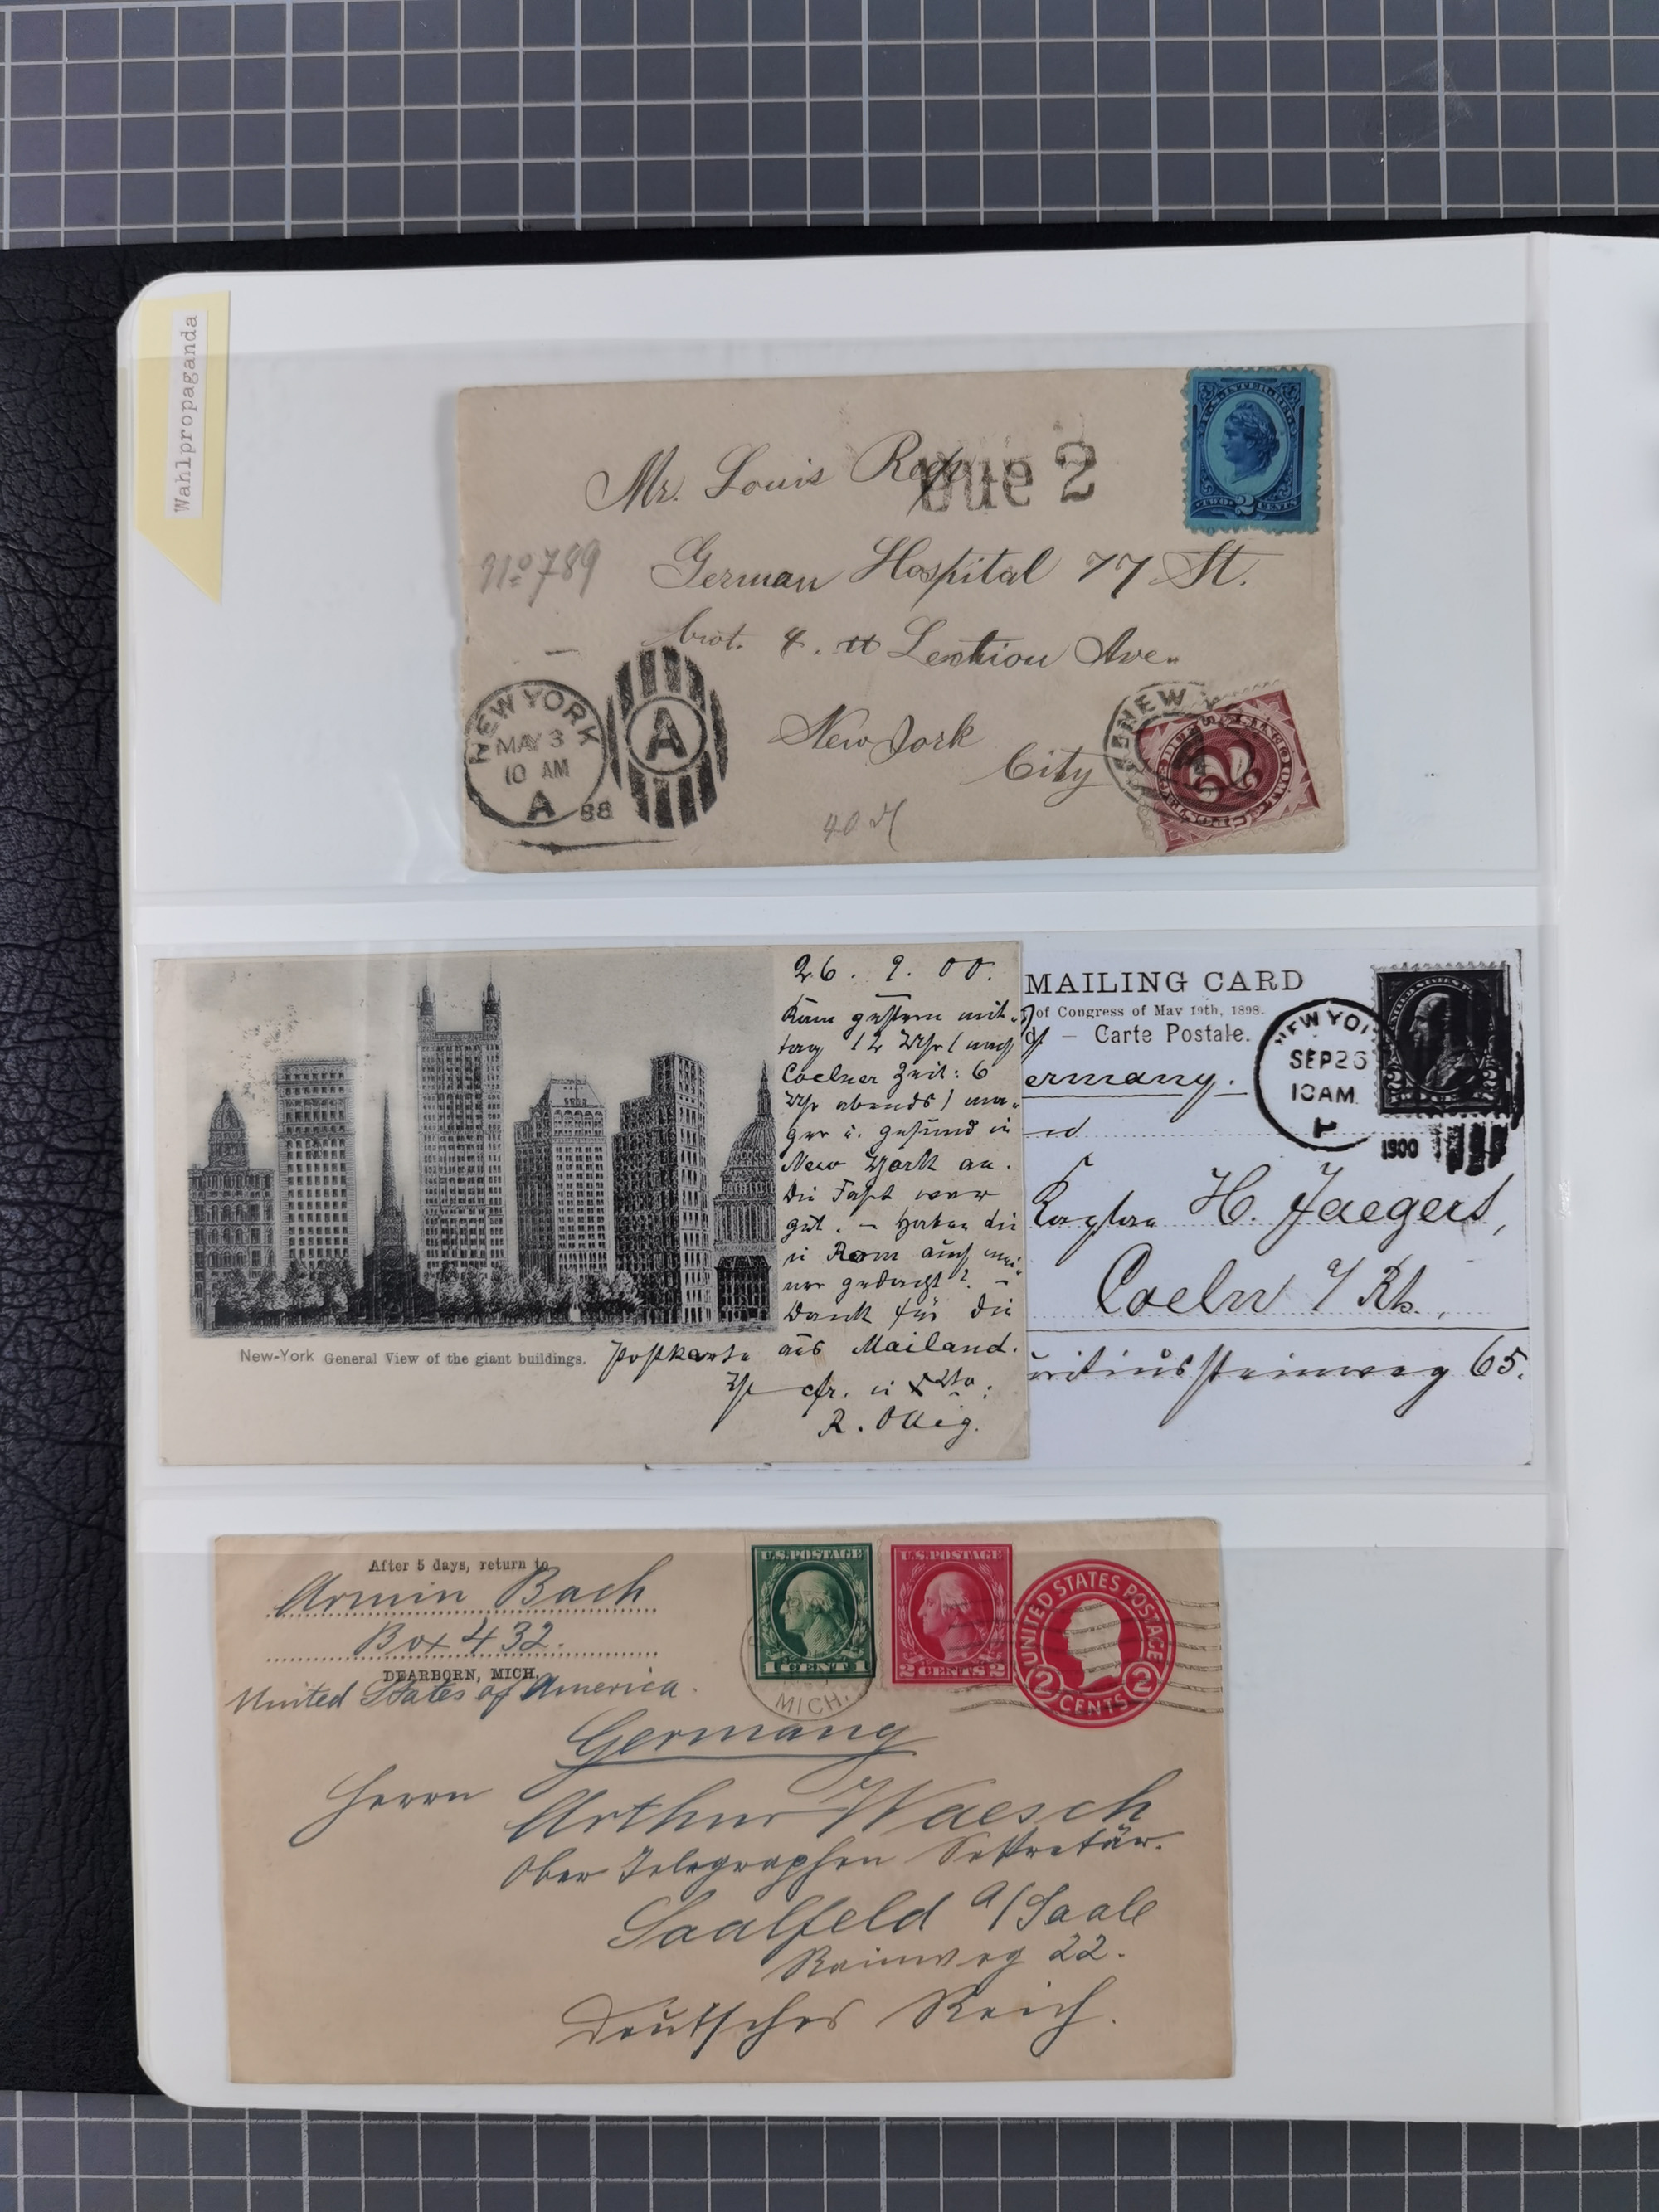 Wahlpropaganda
Mr. Louis
Due 2
U.S. INTER. REV.
TWO 2 CENTS
No 789
German Hospital 77 St.
4. Ave.
New York
City
NEW YORK
MAY 3
10 AM
A 88
A
NEW
40
26. 9. 00.
Kam gestern mit-
tag 12 Uhr (nach
Coelner Zeit: 6
Uhr abends) ma-
ger u. gesund in
New York an.
Die Fahrt war
gut. – Haben Sie
in Rom auch mei-
ner gedacht? –
Dank für die
Postkarte aus Mailand.
cfr. in
R.
New-York General View of the giant buildings.
MAILING CARD
of Congress of May 19th, 1898.
– Carte Postale.
ermany.
NEW YO
SEP 26
10 AM
1900
Kaplan H. Jaegers,
Coeln a/Rh.
65.
After 5 days, return to
Armin Bach
Box 432.
DEARBORN, MICH.
United States of America.
U.S. POSTAGE
1 CENT 1
U.S. POSTAGE
2 CENTS 2
UNITED STATES POSTAGE
2 CENTS 2
MICH.
Germany
Herrn Arthur Waesch
Ober Telegraphen Sekretär.
Saalfeld a/Saale
Rainweg 22.
Deutsches Reich.